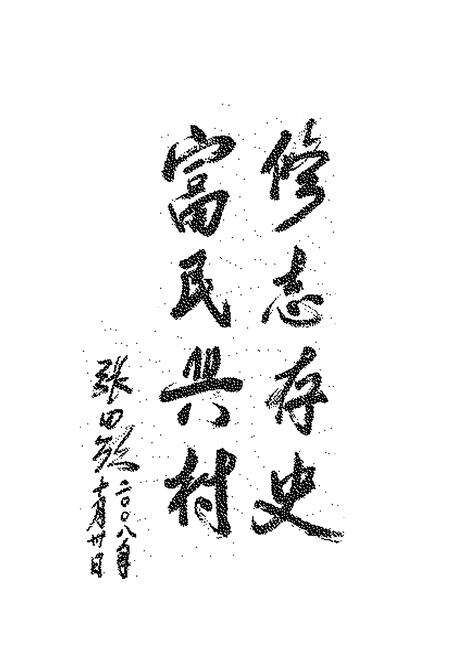 修志存史
富民兴村
张田欣
二〇〇八年
十月廿日